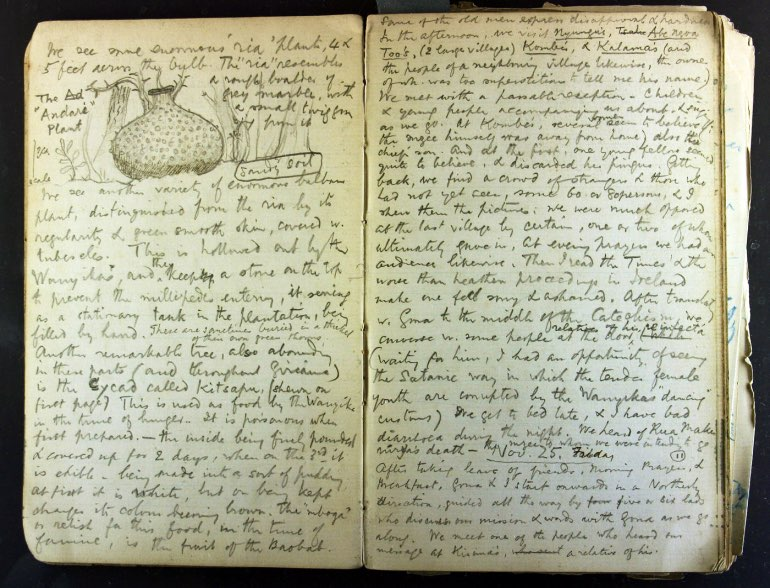 We see some enormous 'ria' plants, 4 &
5 feet across the bulb. The "ria" resembles
a rough boulder of
grey marble, with
a small twig growing
from it
The
"Andare"
Plant
scale
Sandy Soil
We see another variety of enormous bulbous
plant, distinguished from the ria by its
regularity & green smooth skin, covered w.
tubercles. This is hollowed out by the
Wanyika's and they keep a stone on the top
to prevent the millipeds entering, it serving
as a stationary tank in the plantation, being
filled by hand. These are sometimes buried in a thicket
of their own green thorns,
Another remarkable tree, also abounding
in these parts (and throughout Giriama)
is the Cycad called Kitsapu, (shewn on
first page) This is used as food by the Wanyika
in the time of hunger. It is poisonous when
first prepared. — the inside being first pounded
& covered up for 2 days, when on the 3rd it
is edible - being made into a sort of pudding
at first it is white, but on being kept
changes its colour becoming brown. The "mboga"
or relish for this food, in the time of
famine, is the fruit of the Baobab.
Some of the old men express disapproval & hardness
In the afternoon, we visit
Too's, (2 large villages) Kombe's, & Kalama's (and
the people of a neighbouring village likewise, the owner
of wh. was too superstitious to tell me his name)
We met with a passable reception - Children
& young people accompanying us about,
as we go. At Kombe's several seem to believe (
the mzee himself was away from home) also the
chief's son. And at the first, one young fellow seemed
quite to believe, & discarded his
back, we find a crowd of strangers & those who
had not yet seen, some 60 or 80 persons, & I
shew them the pictures: we were much opposed
at the last village by certain, one or two of whom
ultimately gave in. At evening prayers we had an
audience likewise. Then I read the Times' & the
worse than heathen proceedings in Ireland
make one feel sorry & ashamed. After translating
w. Gona to the middle of the Catechism, we
converse w. some people at the door,
(waiting for him, I had an opportunity of seeing
the Satanic way in which the tender female
youth are corrupted by the Wanyika's "dancing"
customs) We get to bed late, & I have bad
diarrhoea during the night. We heard of
death - to whom we were intending to go
Nov. 25, Friday
11
After taking leave of friends, Morning Prayers, &
Breakfast, Gona & I start onwards in a Northerly
direction, guided all the way by four five or six lads
who discuss our mission & words with Gona as we go
along. We meet one of the people who heard our
message at a relative of his.